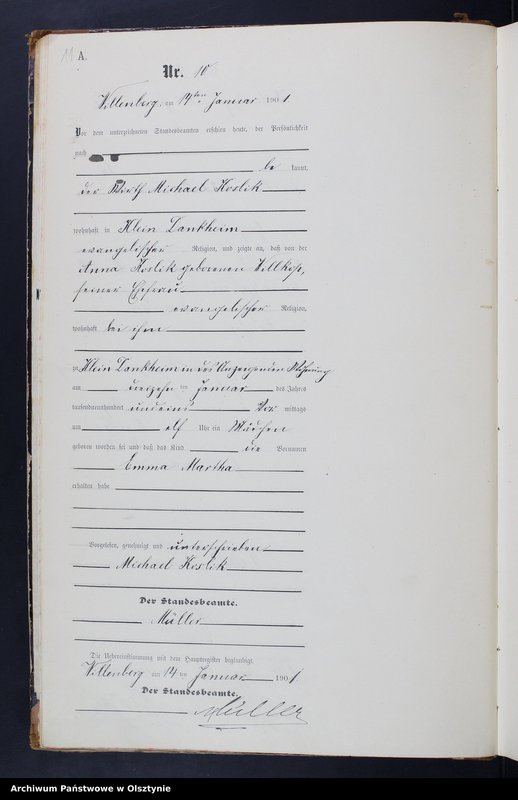 11 A.
Nr. 10
Wittenberg, am 14ten Januar 1901.
Vor dem unterzeichneten Standesbeamten erschien heute, der Persönlichkeit
nach
be kannt,
der Wirth Michael Koslik
wohnhaft in Klein Dankheim
evangelischer Religion, und zeigte an, daß von der
Anna Koslik geborenen Willkop,
seiner Ehefrau
evangelischer Religion,
wohnhaft bei ihm
zu Klein Dankheim in des Anzeigenden Wohnung
am dreizehnten Januar des Jahres
tausendneunhundert undeins Vor mittags
um elf Uhr ein Mädchen
geboren worden sei und daß das Kind die Vornamen
Emma Martha
erhalten habe
Vorgelesen, genehmigt und unterschrieben
Michael Koslik
Der Standesbeamte.
Müller
Die Uebereinstimmung mit dem Hauptregister beglaubigt.
Wittenberg am 14 ten Januar 1901
Der Standesbeamte.
Müller
Archiwum Państwowe w Olsztynie